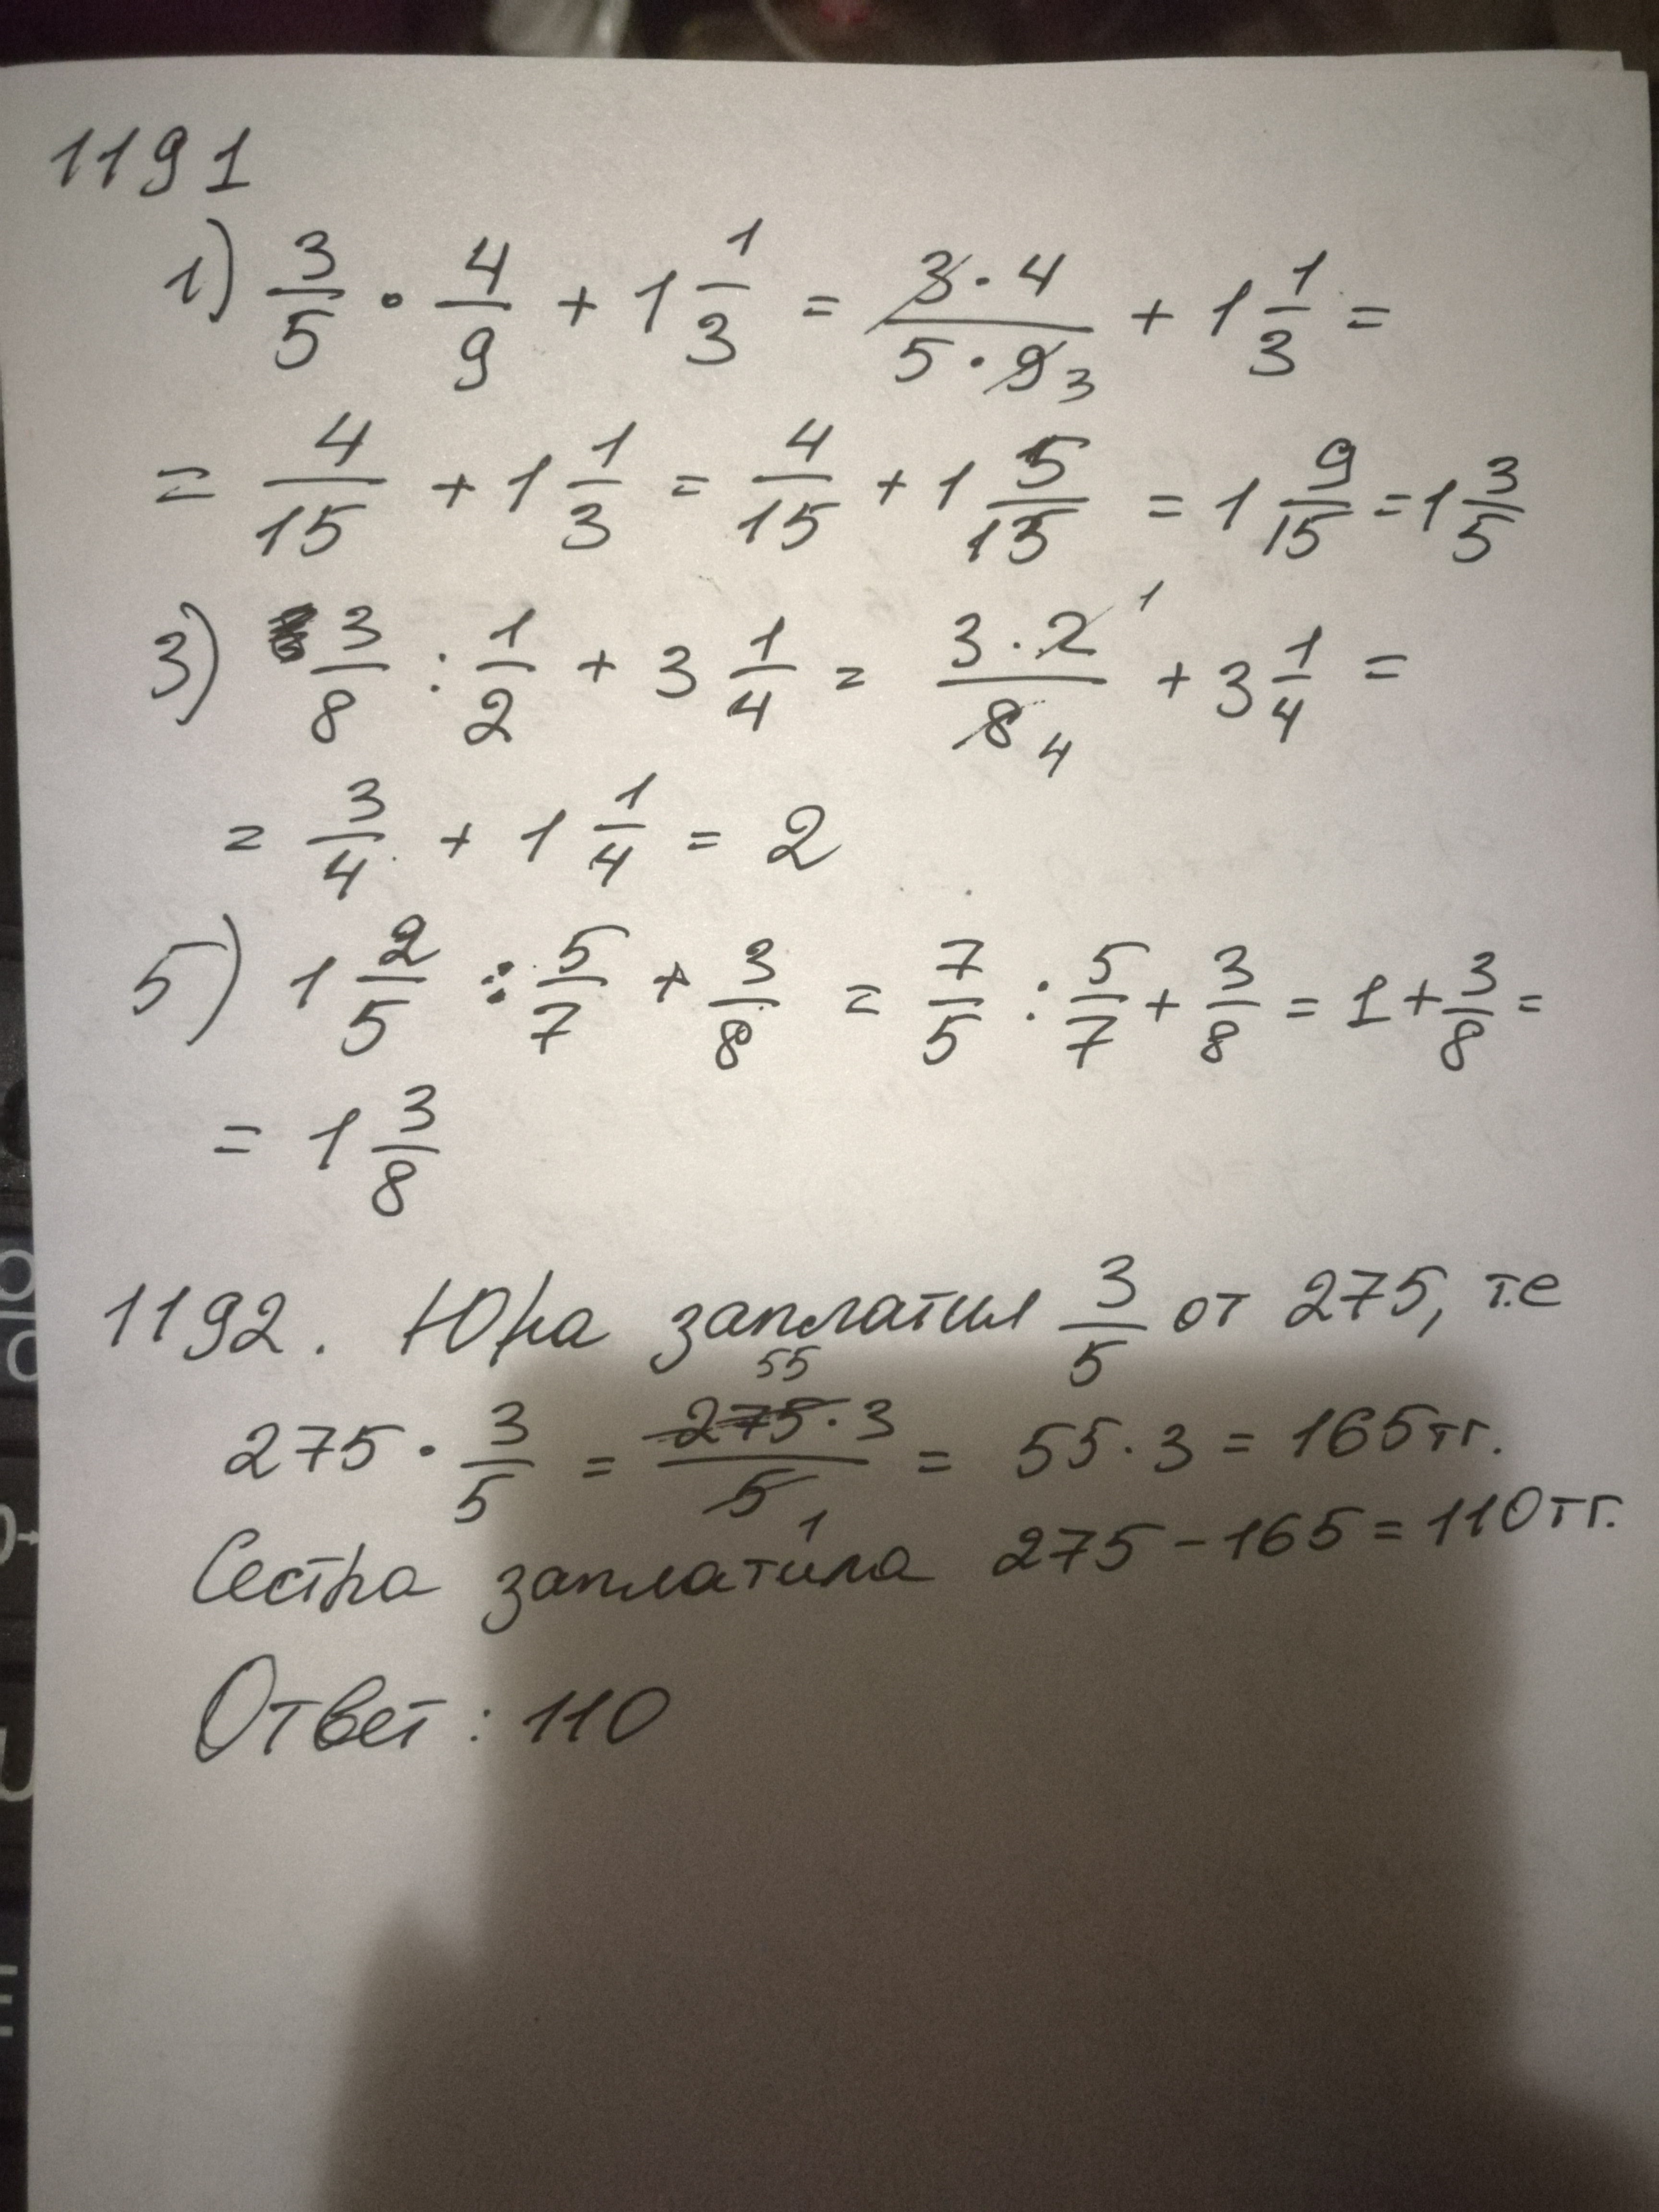 1191
1) 3/5 · 4/9 + 1 1/3 = 3·4/5·9 3 + 1 1/3 =
= 4/15 + 1 1/3 = 4/15 + 1 5/15 = 1 9/15 = 1 3/5
3) 3/8 : 1/2 + 3 1/4 = 3·2 1/8 4 + 3 1/4 =
= 3/4 + 1 1/4 = 2
5) 1 2/5 : 5/7 + 3/8 = 7/5 : 5/7 + 3/8 = 1 + 3/8 =
= 1 3/8
1192. Юра заплатил 3/5 от 275, т.е
275 · 3/5 = 55 275·3/5 1 = 55·3 = 165тг.
Сестра заплатила 275 - 165 = 110тг.
Ответ: 110